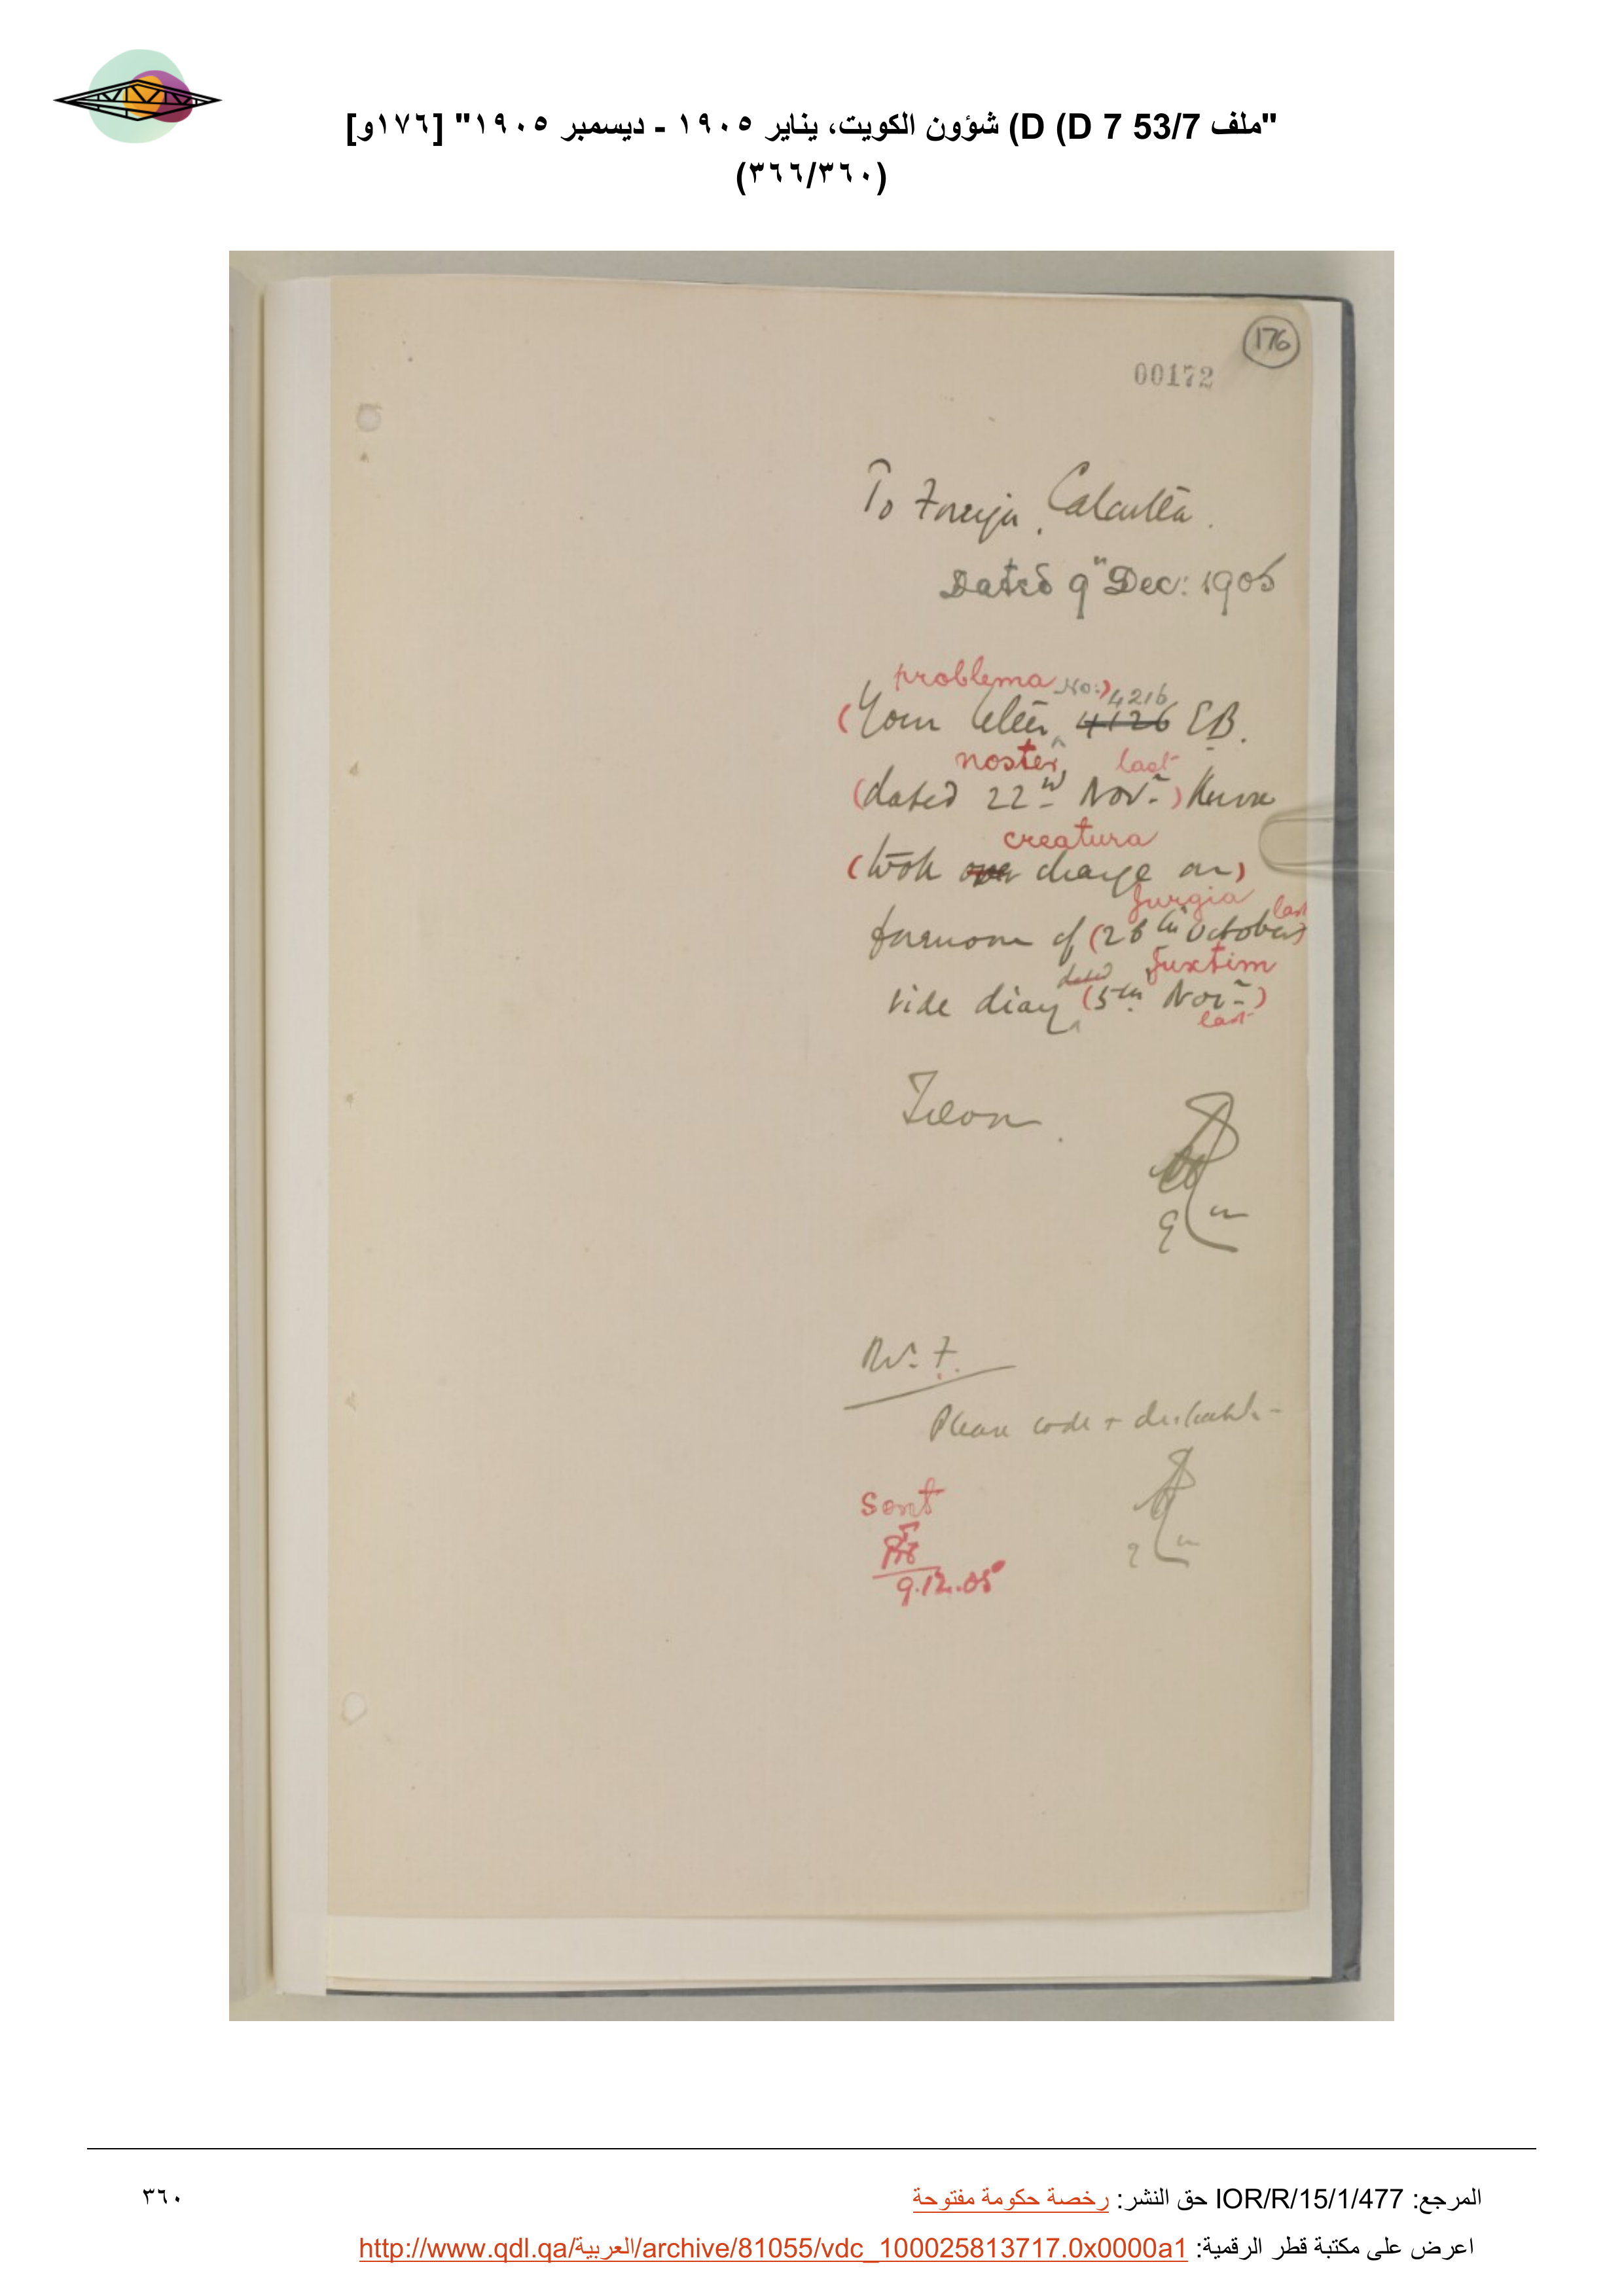 "ملف 53/7 D 7 (D) شؤون الكويت، يناير ١٩٠٥ - ديسمبر ١٩٠٥" [١٧٦و]
(٣٦٦/٣٦٠)
176
00172
To Foreign, Calcutta.
Dated 9th Dec: 1905
problema No:) 4216
(Your letter 4126 EB.
noster last
(dated 22nd Novr.) Knox
creatura
(took over charge on)
Jurgia last
forenoon of (28th October)
dated Juxtim
vide diary (5th Novr.)
last
9
Mr. F.
Please code + despatch -
Sent
9.12.05
المرجع: IOR/R/15/1/477 حق النشر: رخصة حكومة مفتوحة
٣٦٠
اعرض على مكتبة قطر الرقمية: http://www.qdl.qa/العربية/archive/81055/vdc_100025813717.0x0000a1